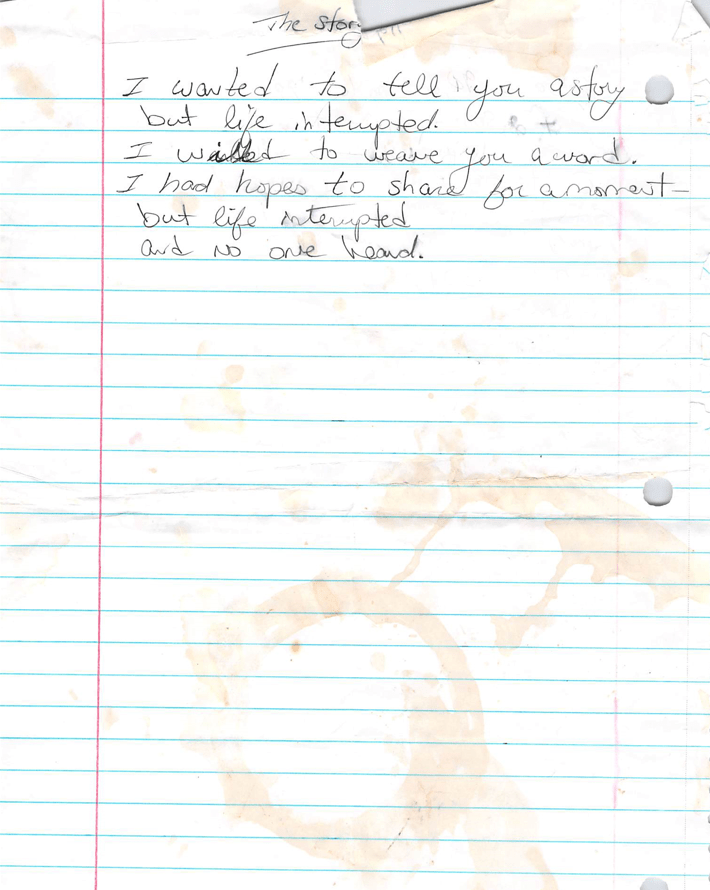 The story
I wanted to tell you a story
but life interrupted.
I to weave you a word.
I had hopes to share for a moment-
but life interrupted
and no one heard.